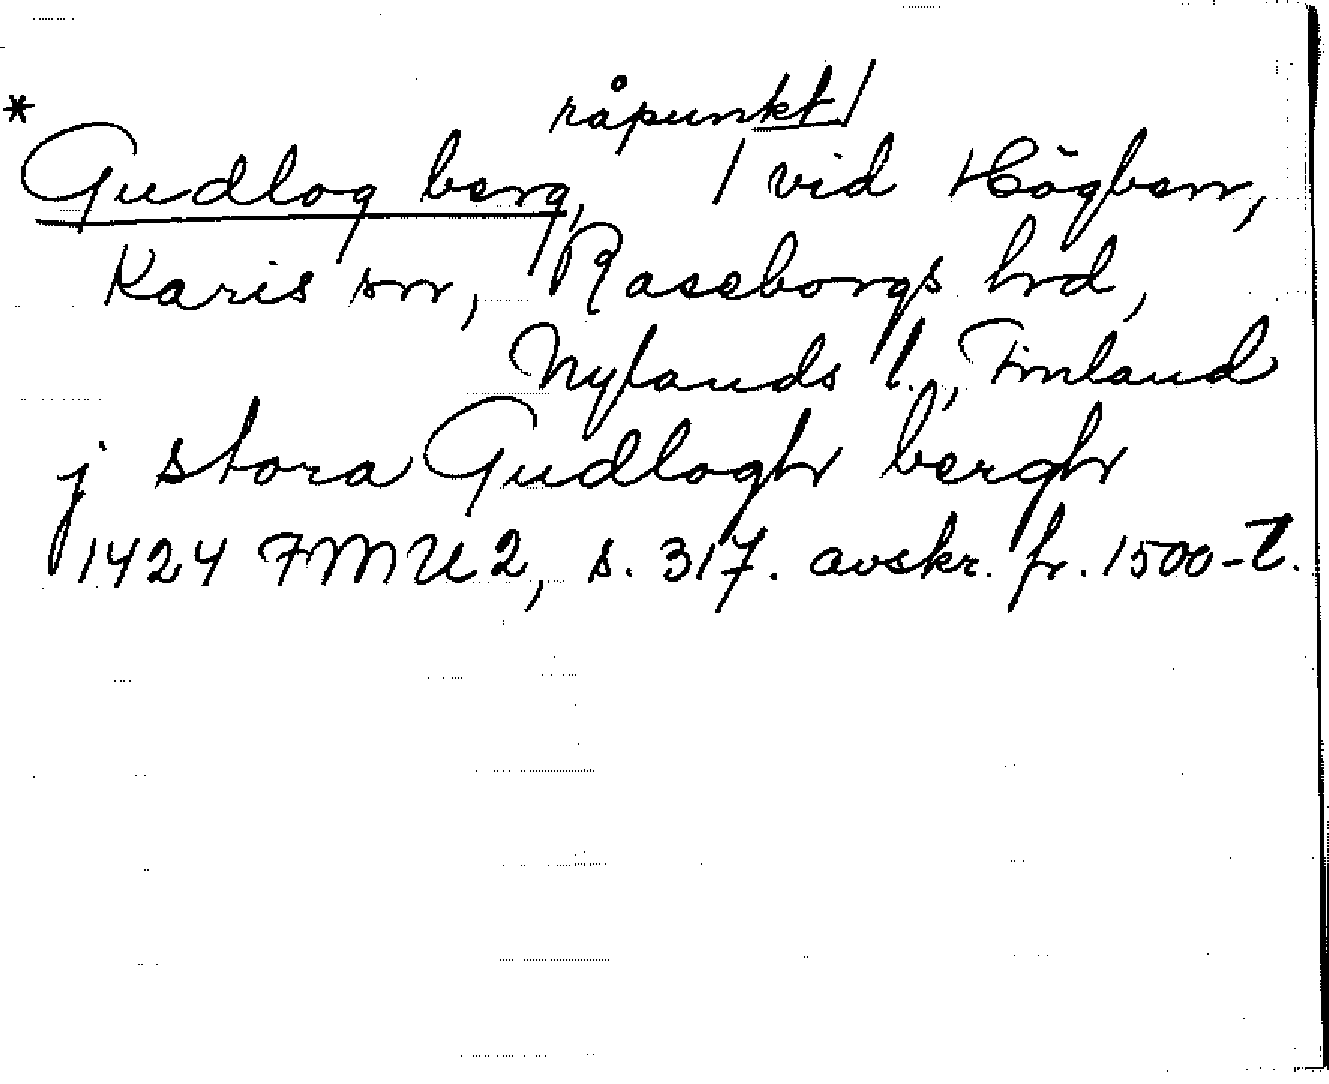 * råpunkt/
Gudlog berg, / vid Högben,
Karis sn, Raseborgs hd,
Nylands l., Finland
j stora Gudlogh bergh
1424 FMU 2, s. 317. avskr. fr. 1500-t.